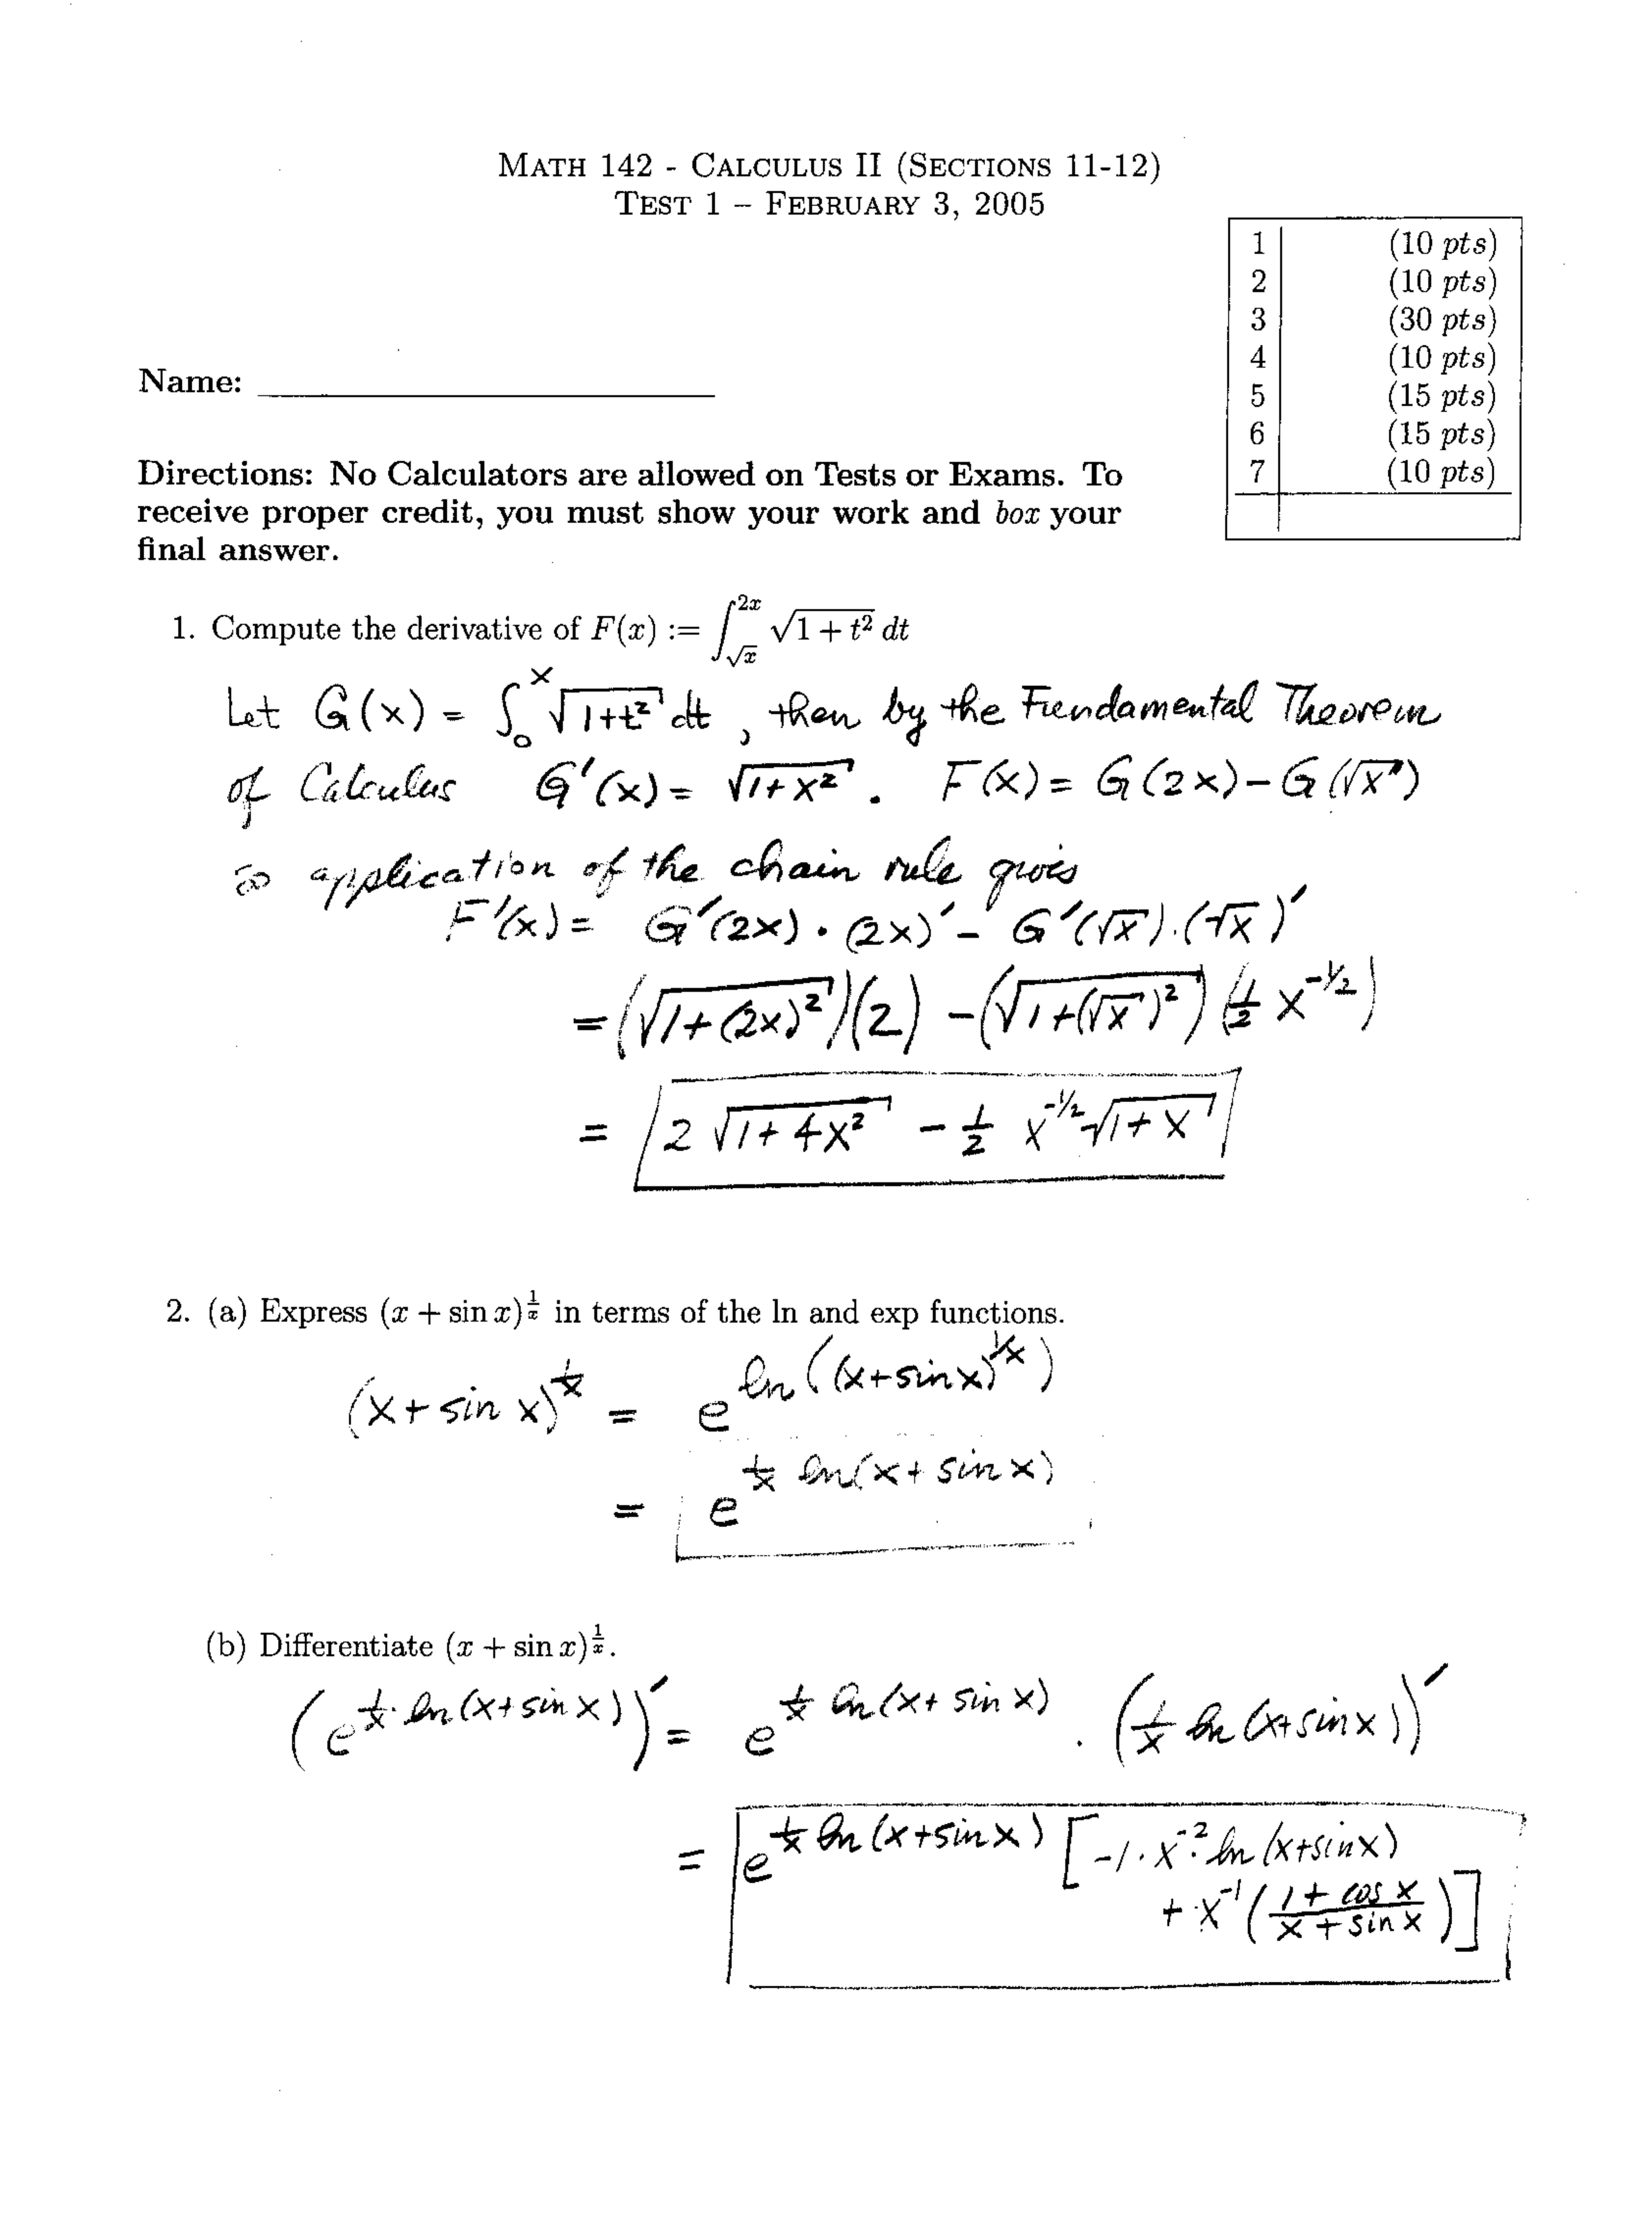 MATH 142 - CALCULUS II (SECTIONS 11-12)
TEST 1 – FEBRUARY 3, 2005
1 (10 pts)
2 (10 pts)
3 (30 pts)
4 (10 pts)
5 (15 pts)
6 (15 pts)
7 (10 pts)
Name:
Directions: No Calculators are allowed on Tests or Exams. To
receive proper credit, you must show your work and box your
final answer.
1. Compute the derivative of F(x) := ∫_{√x}^{2x} √(1 + t²) dt
Let G(x) = ∫_0^x √(1+t²) dt, then by the Fundamental Theorem
of Calculus G'(x) = √(1+x²). F(x) = G(2x) – G(√x)
so application of the chain rule gives
F'(x) = G'(2x) · (2x)' – G'(√x) · (√x)'
= (√(1+(2x)²))(2) – (√(1+(√x)²))(1/2 x^{-1/2})
= 2√(1+4x²) – 1/2 x^{-1/2} √(1+x)
2. (a) Express (x + sin x)^{1/x} in terms of the ln and exp functions.
(x + sin x)^{1/x} = e^{ln((x+sin x)^{1/x})}
= e^{1/x ln(x + sin x)}
(b) Differentiate (x + sin x)^{1/x}.
(e^{1/x · ln(x+sin x)})' = e^{1/x ln(x+sin x)} · (1/x ln(x+sin x))'
= e^{1/x ln(x+sin x)} [-1 · x^{-2} · ln(x+sin x)
+ x^{-1} ((1 + cos x)/(x + sin x))]